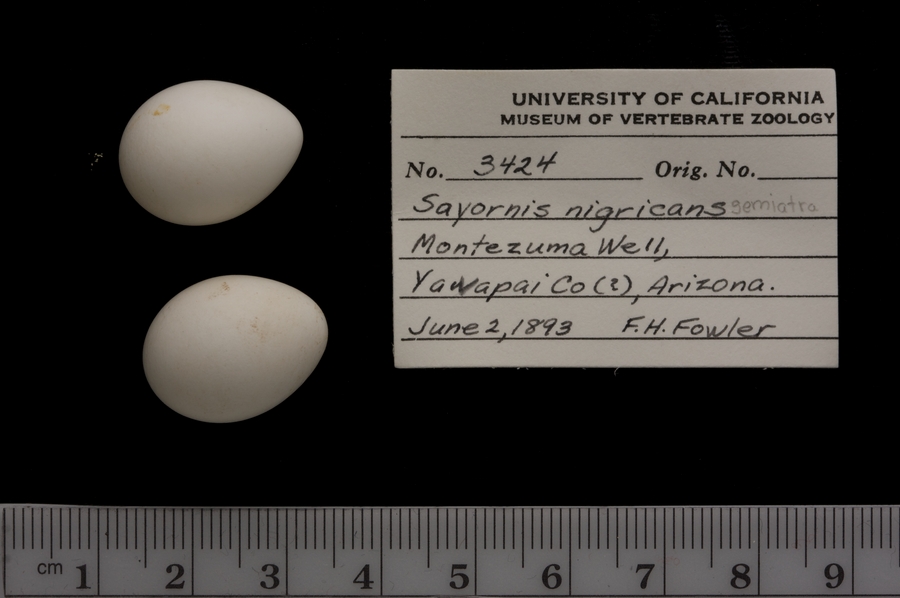 UNIVERSITY OF CALIFORNIA
MUSEUM OF VERTEBRATE ZOOLOGY
No. 3424 Orig. No.
Sayornis nigricans semiatra
Montezuma Well,
Yavapai Co (?), Arizona.
June 2, 1893 F.H. Fowler
cm 1 2 3 4 5 6 7 8 9